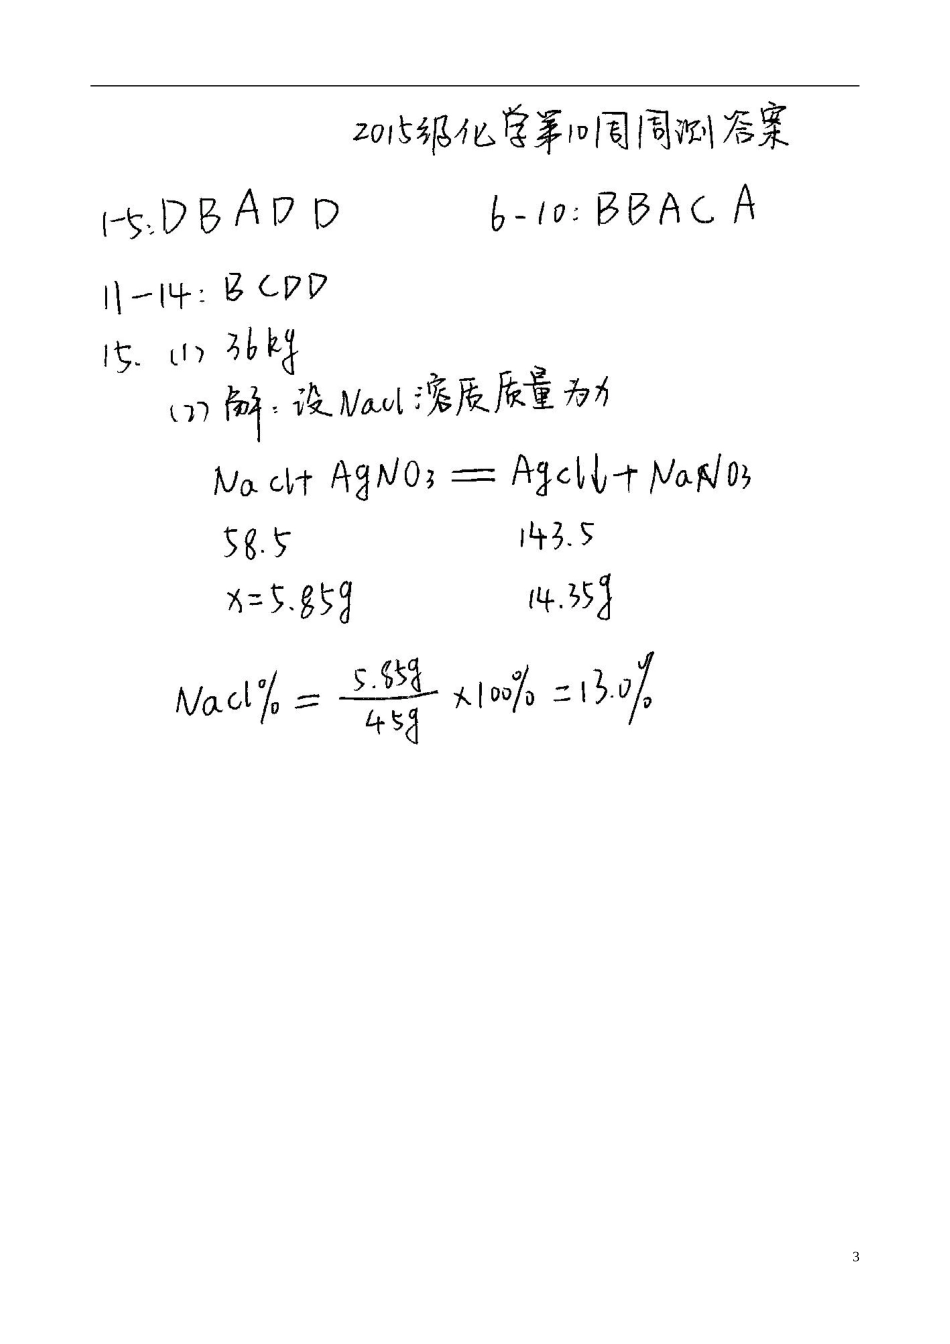 2015级化学第10周周测答案
1-5:DBADD 6-10:BBACA
11-14:BCDD
15. (1) 36kg
(2) 解:设NaCl溶质质量为x
NaCl+AgNO3=AgCl↓+NaNO3
58.5 143.5
x=5.85g 14.35g
NaCl%=5.85g/45g×100%=13.0%
3